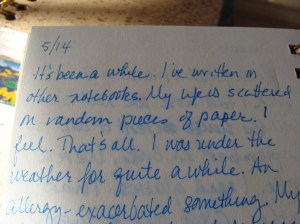 5/14
It's been a while. I've written in
other notebooks. My life is scattered
on random pieces of paper. I
feel. That's all. I was under the
weather for quite a while. An
allergy-exacerbated something. My